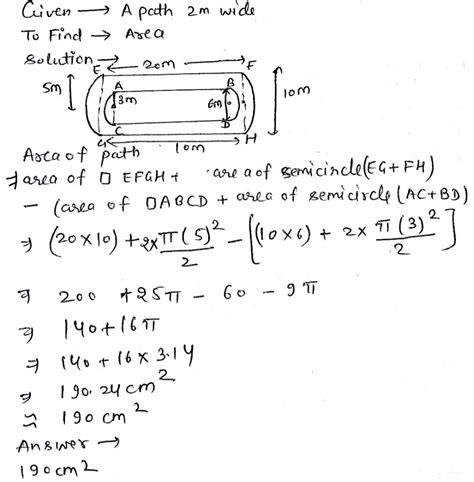 Given → A path 2m wide
To Find → Area
Solution →
E 20m F
5m A B 10m
3m 6m
C D
G 10m H
Area of path
⇒ area of □ EFGH + area of semicircle (EG + FH)
− (area of □ABCD + area of semicircle (AC+BD)
⇒ (20×10) + 2×π(5)²/2 − [(10×6) + 2× π(3)²/2]
⇒ 200 + 25π − 60 − 9π
⇒ 140 + 16π
⇒ 140 + 16 × 3.14
⇒ 190.24 cm²
≈ 190 cm²
Answer →
190cm2